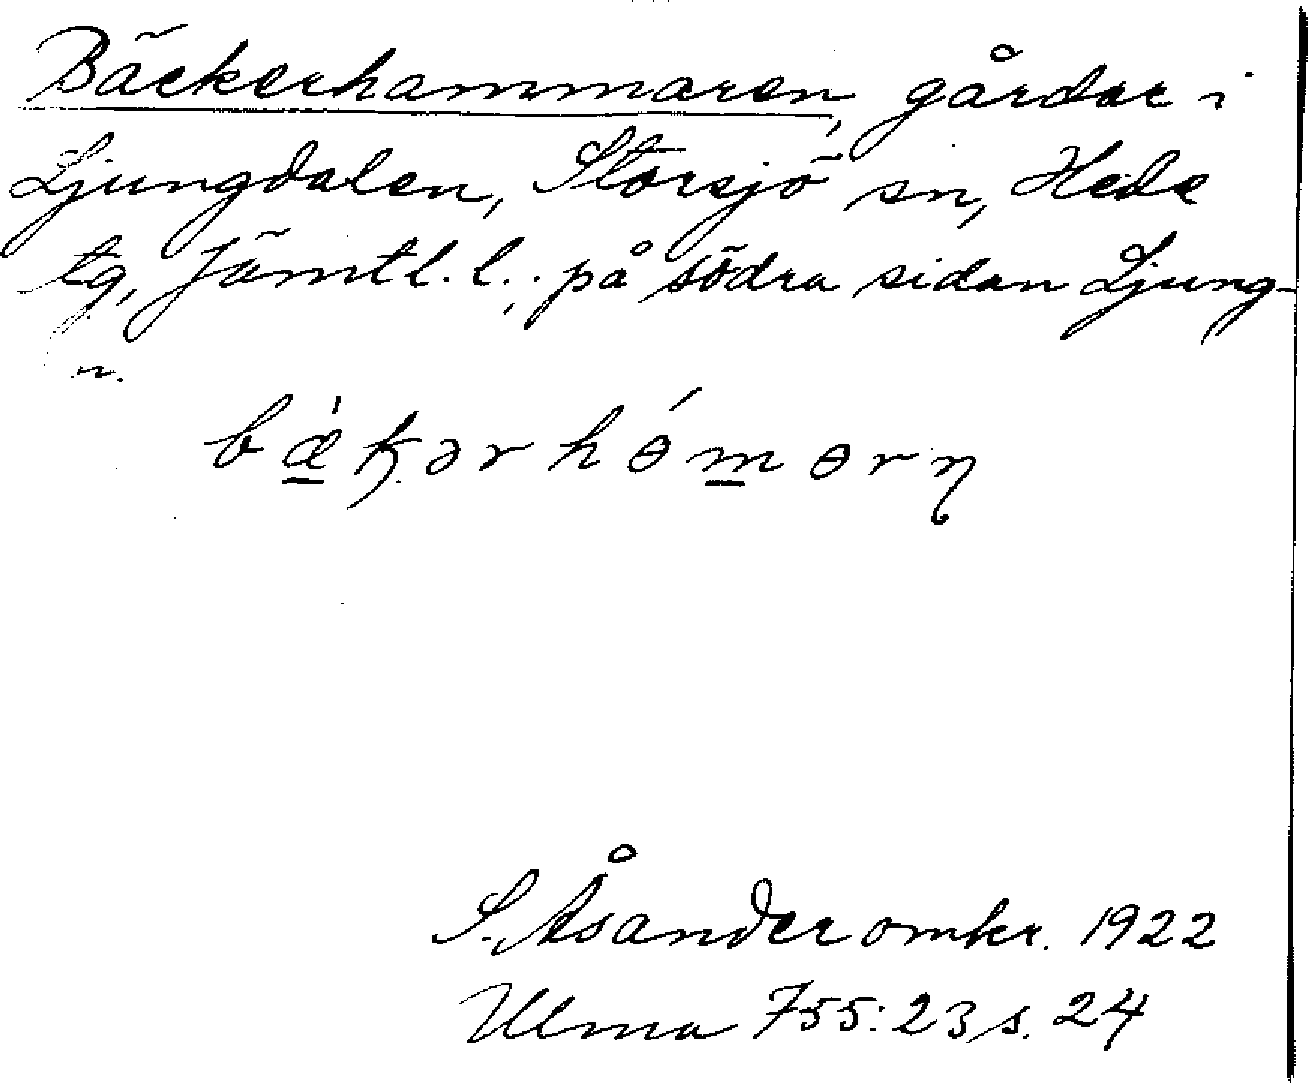 Bäckerhammaren, gårdar i
Ljungdalen, Storsjö sn, Hede
tg, Jämtl. l.; på södra sidan Ljung-
n.
bæ̲̀ꞣərhɵ́m̲ɵrη
S. Åsander omkr. 1922
Ulma 755:23 s. 24